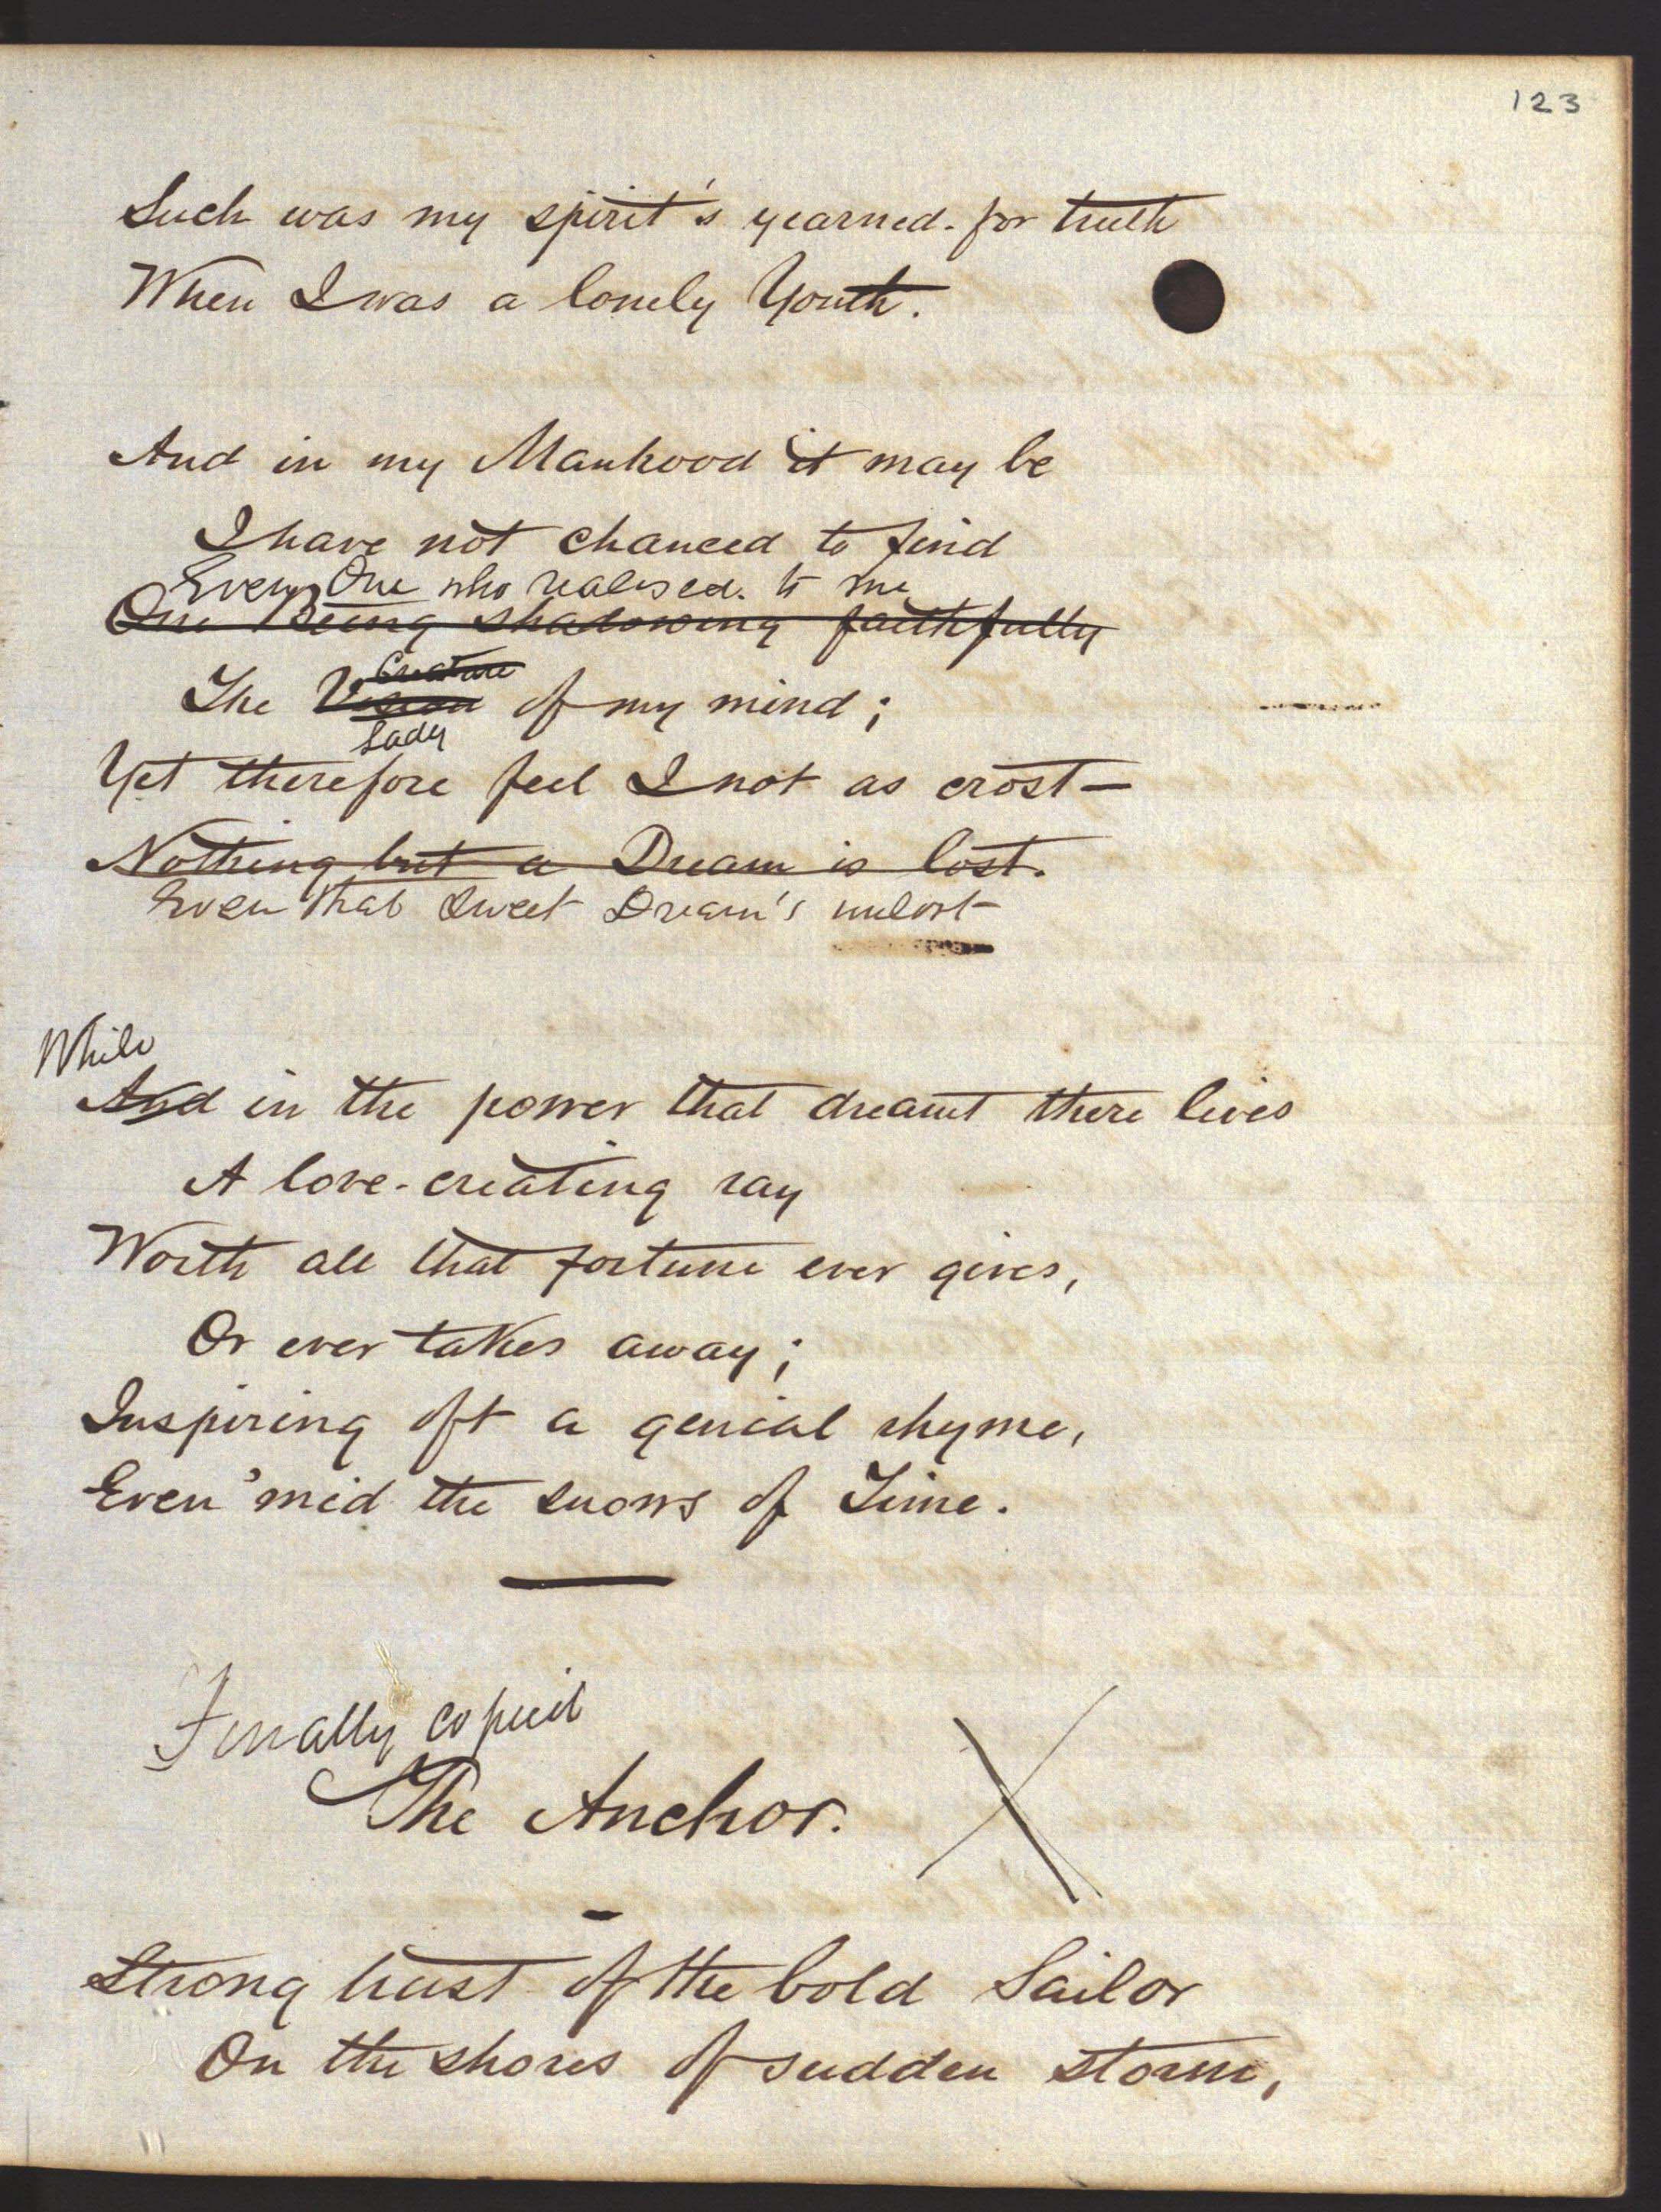 123
Such was my spirit's yearned-for truth
When I was a lonely Youth.
And in my Manhood it may be
I have not chanced to find
Even One who realised to me
One Being shadowing faithfully
Creature
The Vision of my mind;
Lady
Yet therefore feel I not as crost—
Nothing but a Dream is lost.
Even that sweet Dream's unlost
While
And in the power that dreamt there lives
A love-creating ray
Worth all that fortune ever gives,
Or ever takes away;
Inspiring oft a genial rhyme,
Even 'mid the snows of Time.
Finally copied
The Anchor.
Strong trust of the bold Sailor
On the shores of sudden storm,